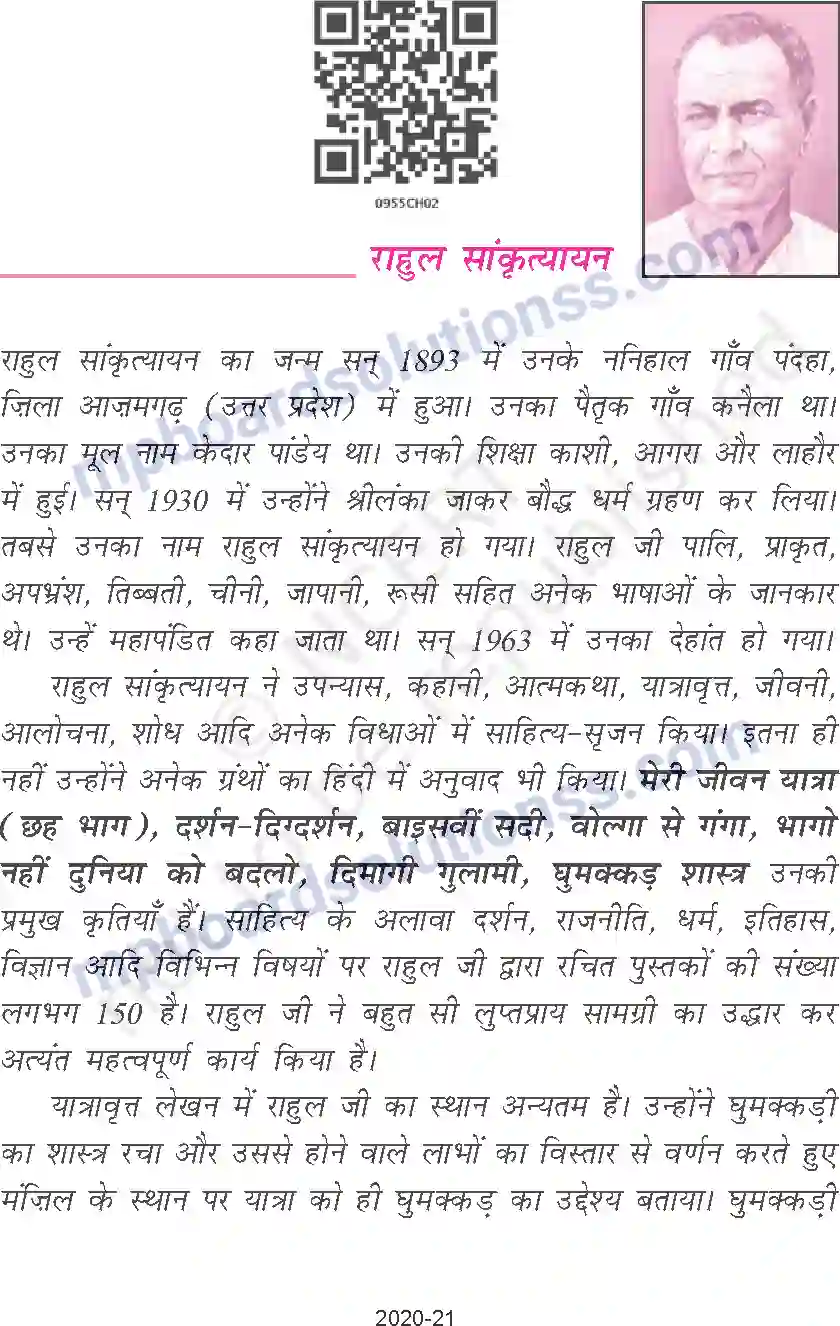 0955CH02
राहुल सांकृत्यायन
राहुल सांकृत्यायन का जन्म सन् 1893 में उनके ननिहाल गाँव पंदहा,
ज़िला आज़मगढ़ (उत्तर प्रदेश) में हुआ। उनका पैतृक गाँव कनैला था।
उनका मूल नाम केदार पांडेय था। उनकी शिक्षा काशी, आगरा और लाहौर
में हुई। सन् 1930 में उन्होंने श्रीलंका जाकर बौद्ध धर्म ग्रहण कर लिया।
तबसे उनका नाम राहुल सांकृत्यायन हो गया। राहुल जी पालि, प्राकृत,
अपभ्रंश, तिब्बती, चीनी, जापानी, रूसी सहित अनेक भाषाओं के जानकार
थे। उन्हें महापंडित कहा जाता था। सन् 1963 में उनका देहांत हो गया।
राहुल सांकृत्यायन ने उपन्यास, कहानी, आत्मकथा, यात्रावृत्त, जीवनी,
आलोचना, शोध आदि अनेक विधाओं में साहित्य-सृजन किया। इतना ही
नहीं उन्होंने अनेक ग्रंथों का हिंदी में अनुवाद भी किया। मेरी जीवन यात्रा
(छह भाग), दर्शन-दिग्दर्शन, बाइसवीं सदी, वोल्गा से गंगा, भागो
नहीं दुनिया को बदलो, दिमागी गुलामी, घुमक्कड़ शास्त्र उनकी
प्रमुख कृतियाँ हैं। साहित्य के अलावा दर्शन, राजनीति, धर्म, इतिहास,
विज्ञान आदि विभिन्न विषयों पर राहुल जी द्वारा रचित पुस्तकों की संख्या
लगभग 150 है। राहुल जी ने बहुत सी लुप्तप्राय सामग्री का उद्धार कर
अत्यंत महत्वपूर्ण कार्य किया है।
यात्रावृत्त लेखन में राहुल जी का स्थान अन्यतम है। उन्होंने घुमक्कड़ी
का शास्त्र रचा और उससे होने वाले लाभों का विस्तार से वर्णन करते हुए
मंज़िल के स्थान पर यात्रा को ही घुमक्कड़ का उद्देश्य बताया। घुमक्कड़ी
2020-21
mpboardsolutionss.com
mpboardsolutionss.com
© NCERT
not to be republished